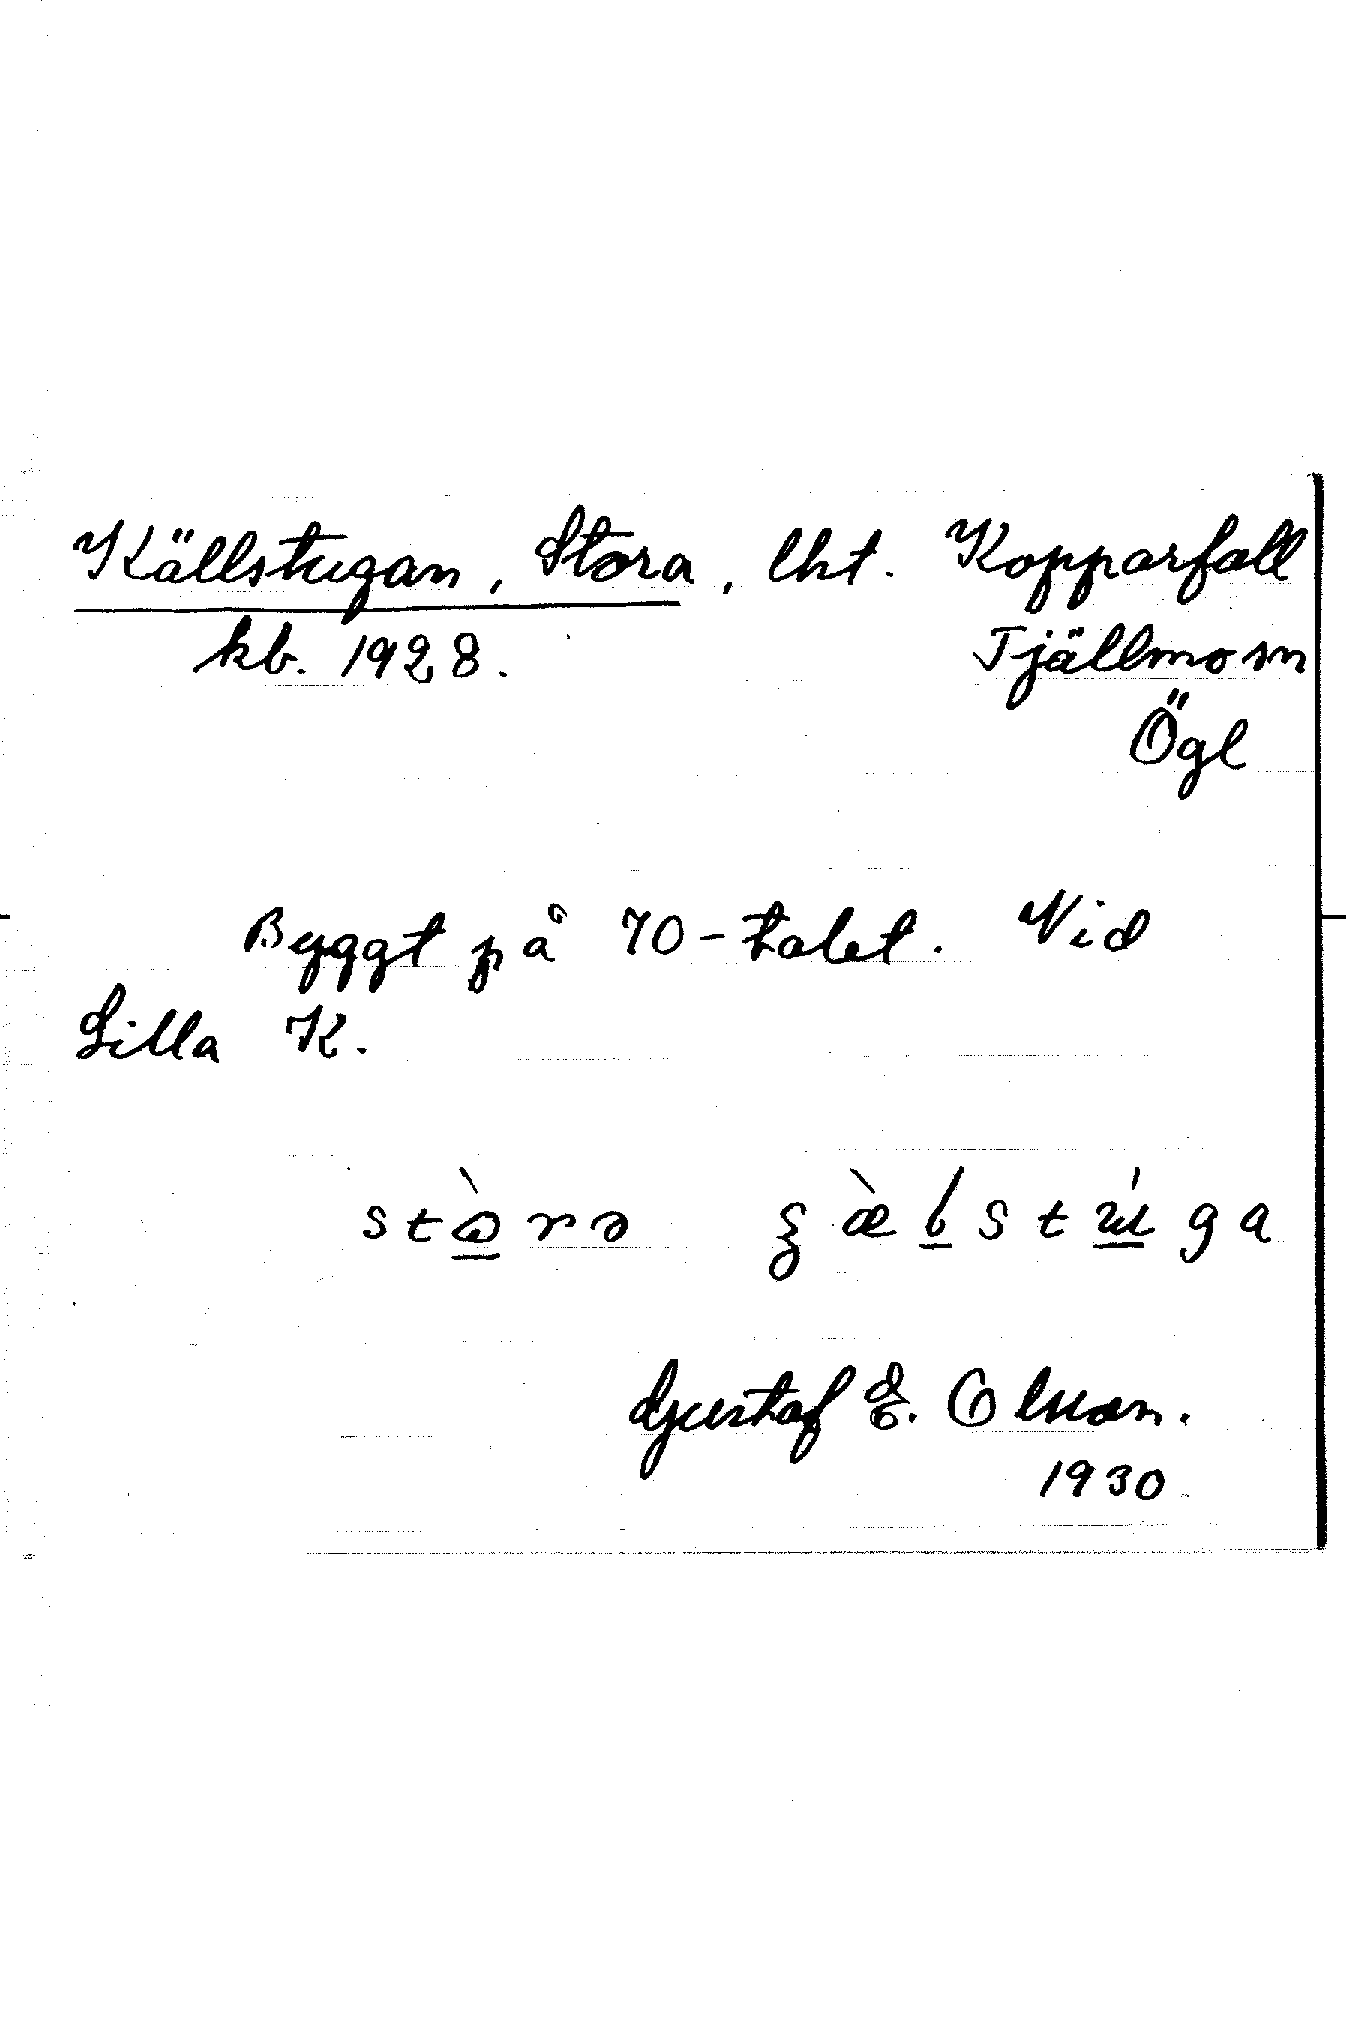 Källstugan, Stora, lht. Kopparfall
kb. 1928. Tjällmo sn
Ögl
Byggt på 70-talet. Vid
Lilla K.
Gustaf E. Olsson.
1930